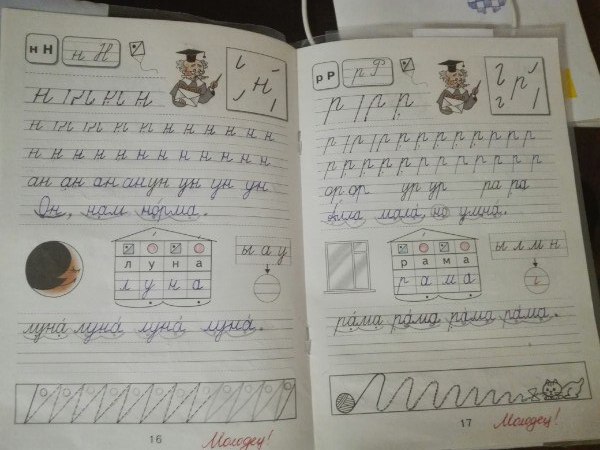 н Н н Н
н н н н н
н н н н н н н н н н н н
н н н н н н н н н н н н
ан ан ан ан ун ун ун ун
Он, нам норма.
л у н а
л у н а
ы а у
луна́ луна́ луна́ луна́.
16
Молодец!
р Р р Р
р р р р
р р р р р р р р р р р р
р р р р р р р р р р р р
ор ор ур ур ра ра
Алла мала́, но умна́.
р а м а
р а м а
ы л м н
ра́ма ра́ма ра́ма ра́ма.
17
Молодец!